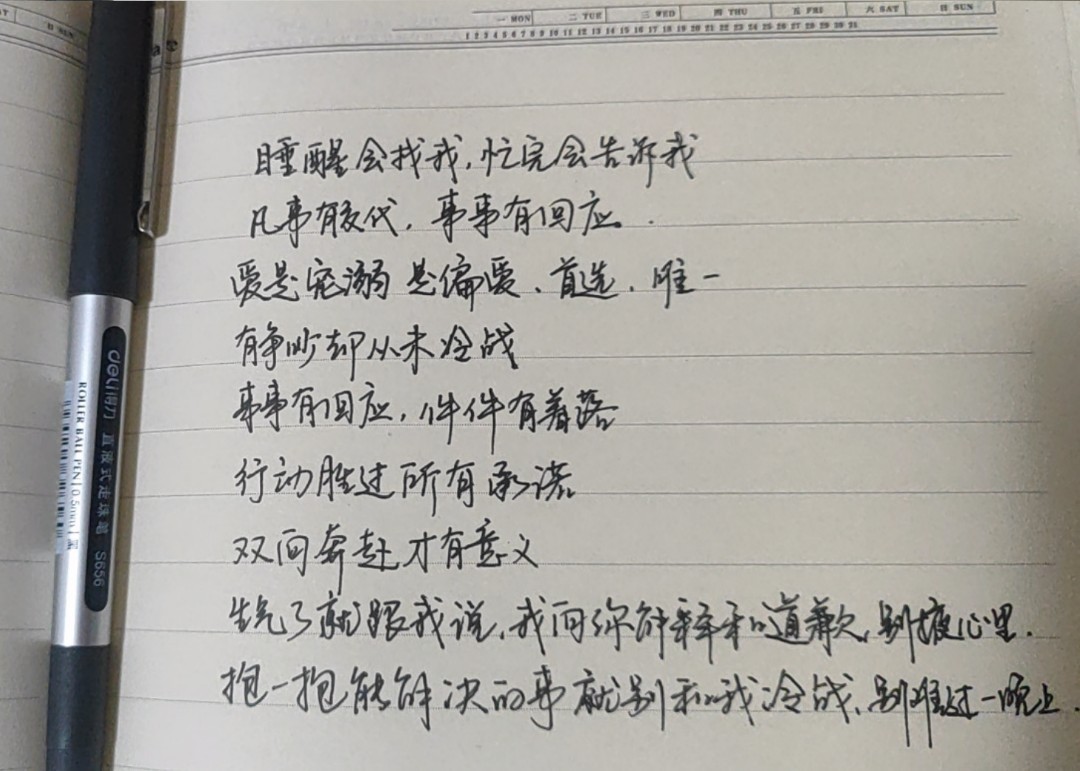 一 MON 二 TUE 三 WED 四 THU 五 FRI 六 SAT 日 SUN
1 2 3 4 5 6 7 8 9 10 11 12 13 14 15 16 17 18 19 20 21 22 23 24 25 26 27 28 29 30 31
睡醒会找我,忙完会告诉我
凡事有交代,事事有回应.
爱是宠溺 是偏爱、首选、唯一
有争吵却从未冷战
事事有回应,件件有着落
行动胜过所有承诺
双向奔赴才有意义
生气了就跟我说,我向你解释和道歉,别憋心里.
抱一抱能解决的事就别和我冷战,别难过一晚上.
deli得力 直液式走珠笔 S656
ROLLER BALL PEN 0.5mm 黑